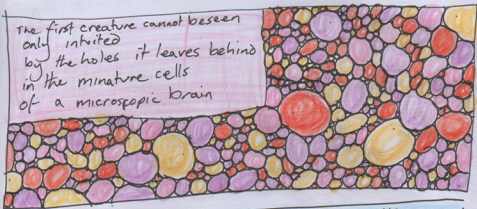 The first creature cannot beseen
only intuited
by the holes it leaves behind
in the minature cells
of a microspopic brain